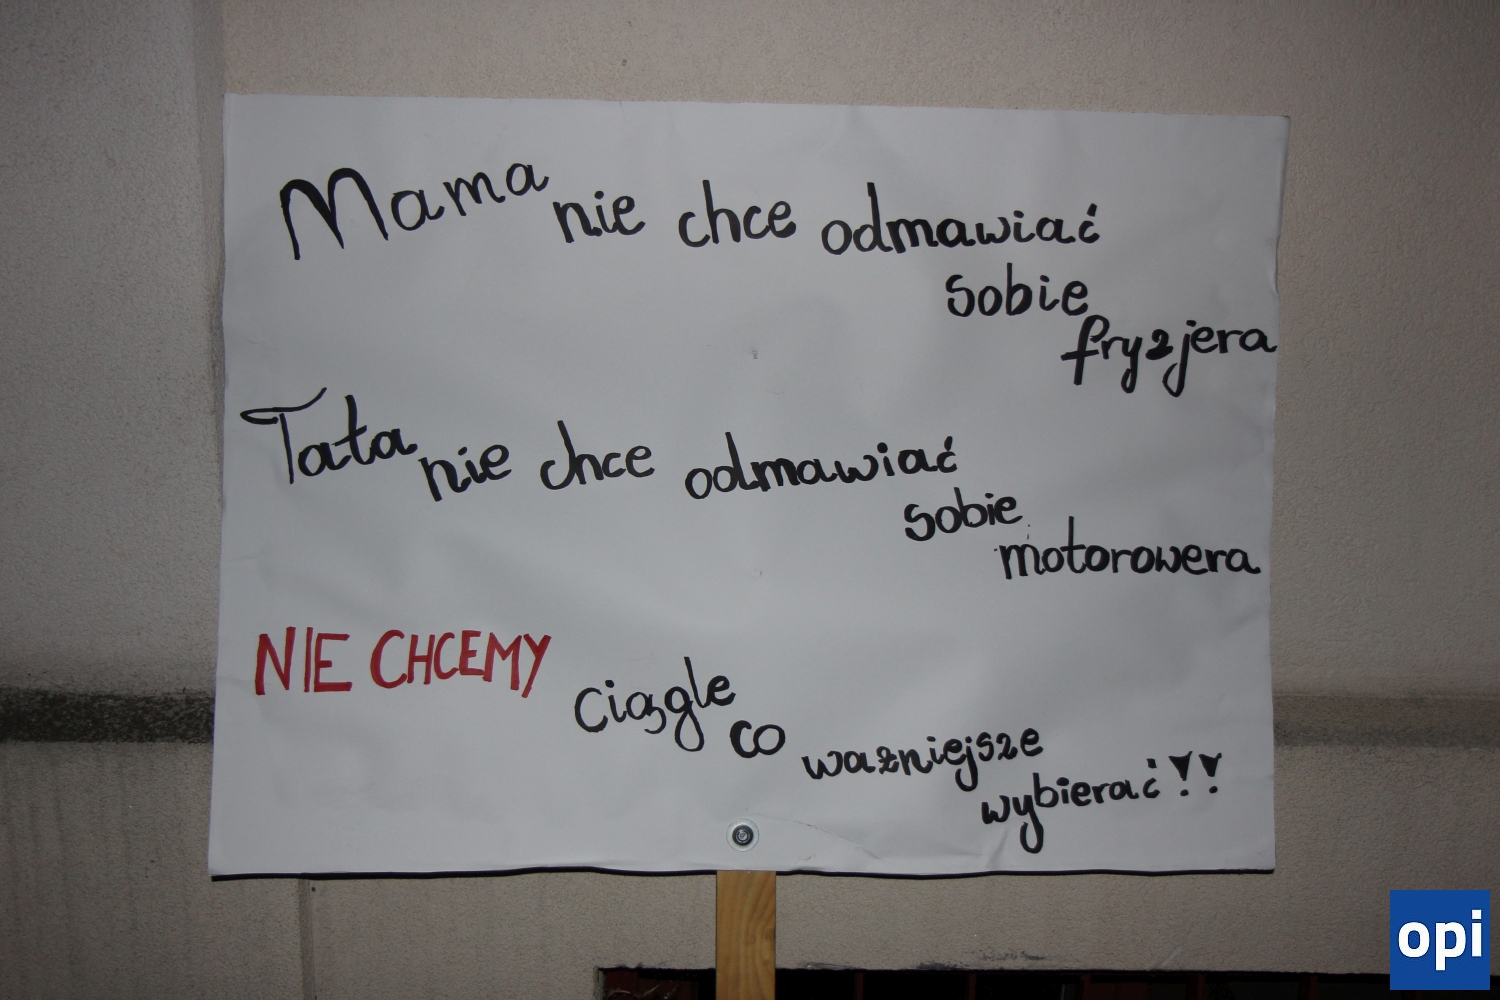 Mama nie chce odmawiać
sobie
fryzjera
Tata nie chce odmawiać
sobie
motorowera
NIE CHCEMY ciągle
co
ważniejsze
wybierać!!
opi